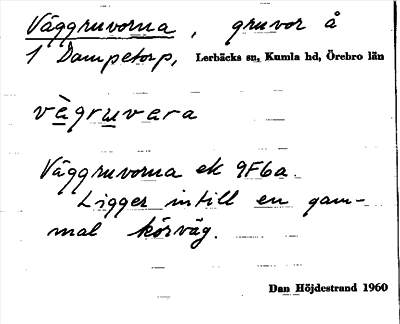 Väggruvorna, gruvor å
1 Dampetorp, Lerbäcks sn, Kumla hd, Örebro län
vàgruvera
Väggruvorna ek 9F6a.
Ligger intill en gam-
mal körväg.
Dan Höjdestrand 1960